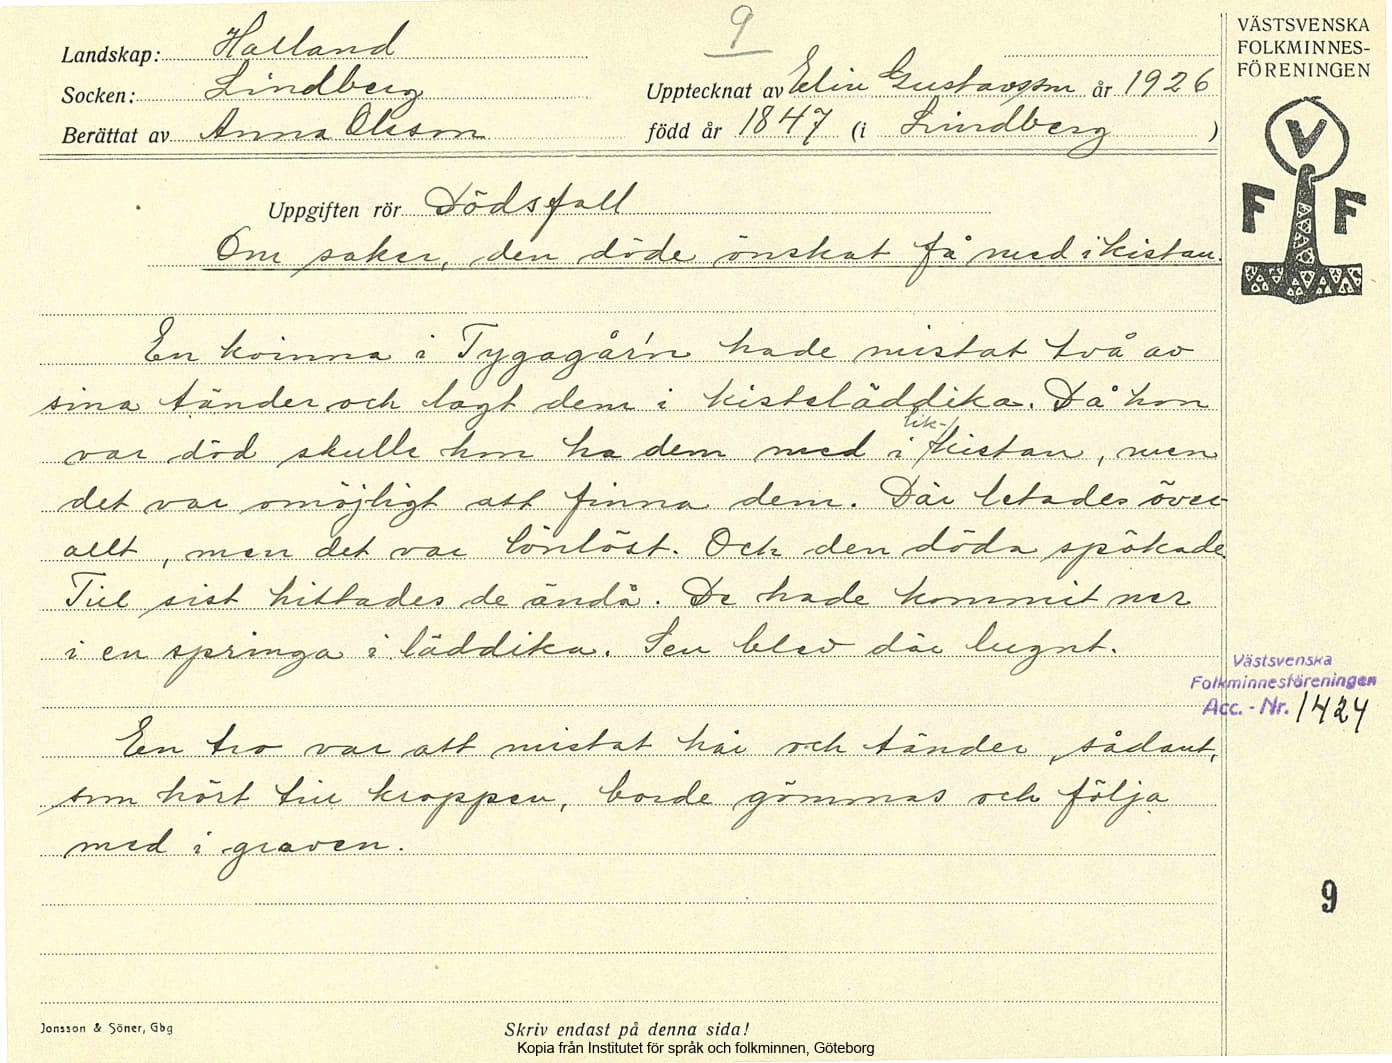 9
VÄSTSVENSKA
FOLKMINNES-
FÖRENINGEN
Landskap: Halland
Socken: Lindberg
Upptecknat av Elin Gustavsson år 1926
Berättat av Anna Olsson
född år 1847 (i Lindberg )
V
F F
Uppgiften rör Dödsfall
Om saker, den döde önskat få med i kistan.
En kvinna i Tygagår'n hade mistat två av
sina tänder och lagt dem i kisteläddika. Då hon
var död skulle hon ha dem med i lik-kistan, men
det var omöjligt att finna dem. Där letades över-
allt, men det var lönlöst. Och den döda spökade.
Till sist hittades de ändå. De hade kommit ner
i en springa i läddika. Sen blev där lugnt.
Västsvenska
Folkminnesföreningen
Acc. - Nr. 1424
En tro var att mistat hår och tänder, sådant,
som hört till kroppen, borde gömmas och följa
med i graven.
9
Jonsson & Söner, Gbg
Skriv endast på denna sida!
Kopia från Institutet för språk och folkminnen, Göteborg